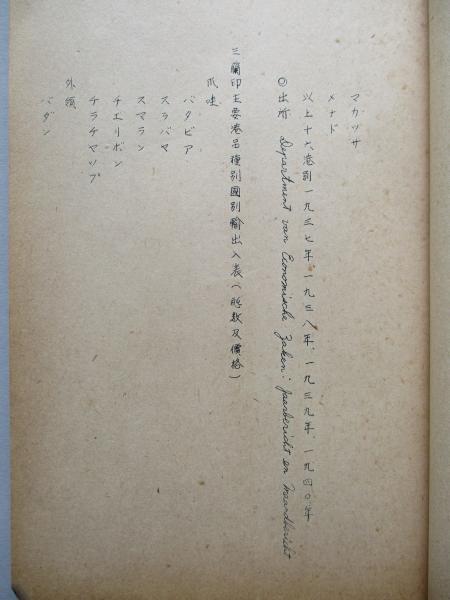 マカッサ
メナド
以上十六港別一九三七年、一九三八年、一九三九年、一九四〇年
◎出所 Department van Economische Zaken: Jaarbericht en Maandbericht
三、蘭印主要港品種別國別輸出入表（瓲数及價格）
爪哇
バタビア
スラバヤ
スマラン
チエリボン
チラチヤツプ
外領
パダン